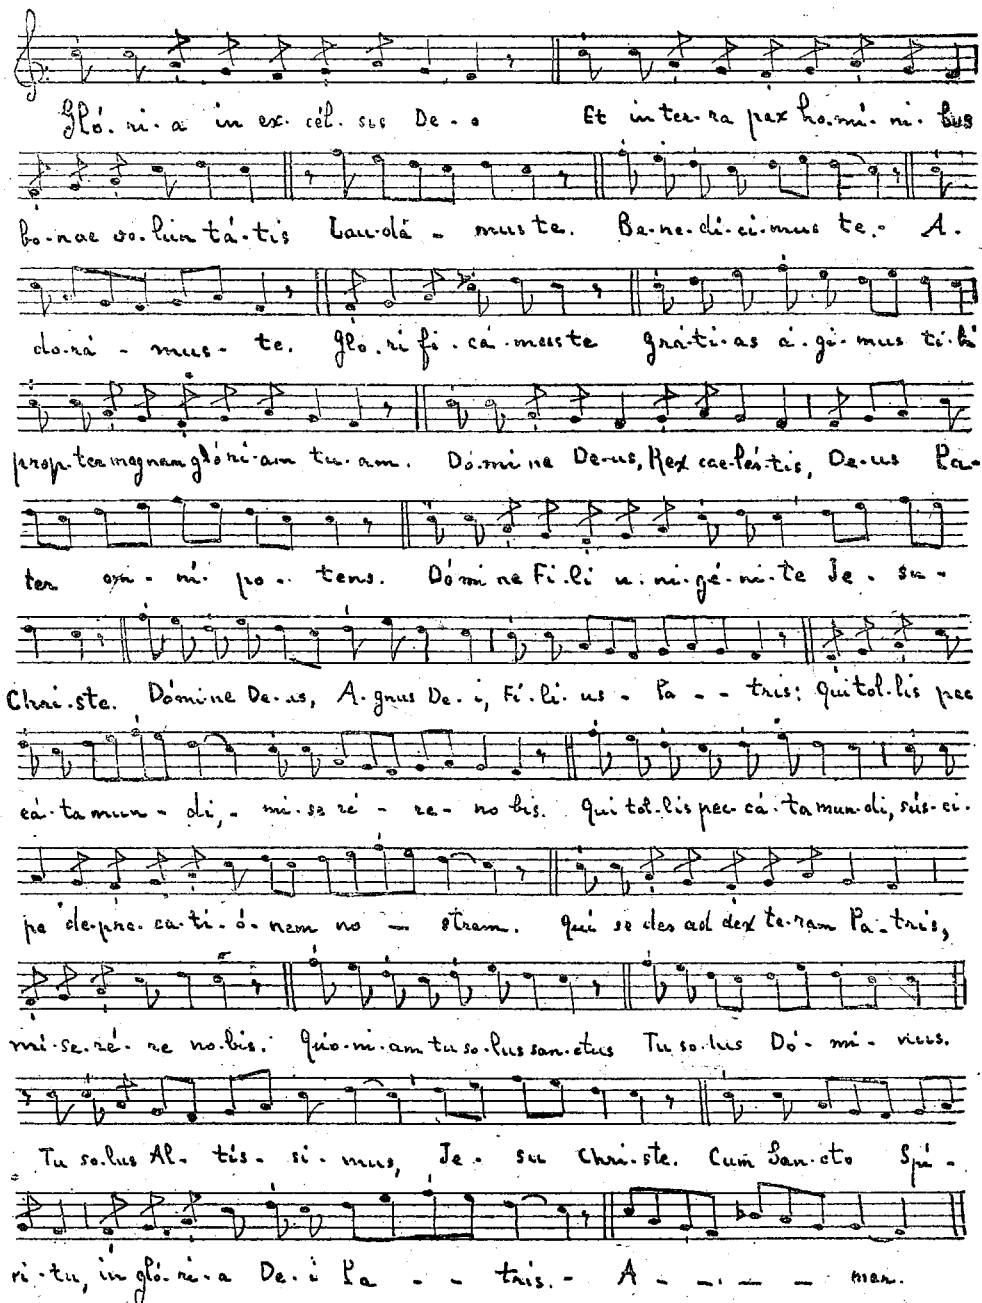 Gló-ri-a in ex-cél-sis De-o Et in ter-ra pax ho-mí-ni-bus
bo-nae vo-lun tá-tis Lau-dá-mus te. Be-ne-di-ci-mus te. A-
do-rá-mus-te. Glo-ri fi-cá-mus te Grá-ti-as á-gi-mus ti-bi
prop-ter magnam gló-ri-am tu-am. Dó-mi ne De-us, Rex cae-lés-tis, De-us Pa-
ter om-ni-po-tens. Dó mi ne Fi-li u-ni-gé-ni-te Je-su-
Chri-ste. Dómi-ne De-us, A-gnus De-i, Fí-li-us-Pa--tris: Qui tol-lis pec
cá-ta mun-di,- mi-se ré-re-no bis. Qui tol-lis pec-cá-ta mun-di, sús-ci-
pe de-pre-ca-ti-ó-nem no-stram. Qui se des ad dex te-ram Pa-tris,
mi-se-ré-re no-bis. Quó-ni-am tu so-lus san-ctus Tu so-lus Dó-mi-nus.
Tu so-lus Al-tís-si-mus, Je-su Chri-ste. Cum San-cto Spí-
ri-tu, in gló-ri-a De-i Pa--tris.- A----men.